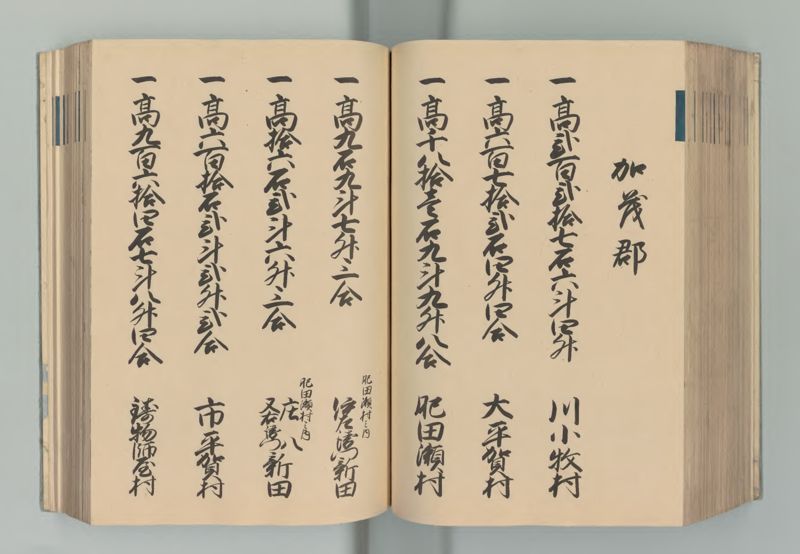 加茂郡
一高弐百弐拾七石六斗四升 川小牧村
一高六百七拾弐石四升四合 大平賀村
一高千八拾壱石九斗九升八合 肥田瀬村
一高九石九斗七升三合 肥田瀬村之内 新田
一高拾六石弐斗六升三合 肥田瀬村之内 庄八 新田
一高六百拾石弐斗弐升弐合 市平賀村
一高九百六拾四石七斗八升四合 鋳物師屋村